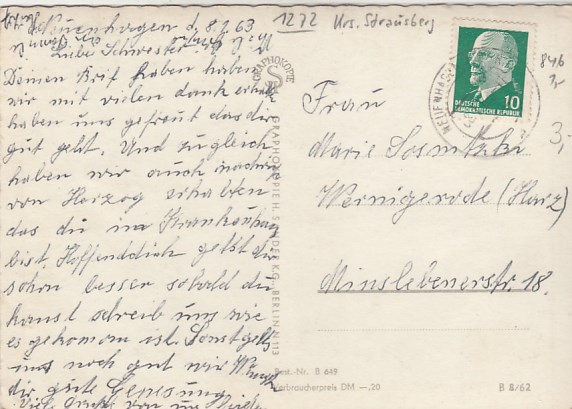 Neuenhagen d, 8.2.63
Liebe Schwester
Deinen Brif haben haben
wir mit vielen dank erhalt
haben uns gefreut das dir
gut geht. Und zugleich
haben wir auch nachri
von Herzog erhalten
das du im Krankenhau
bist. Hoffenddich geht dir
schon besser sobald du
kanst schreib uns wie
es gekomen ist. Sonst geht
uns noch gut wir
dir gute Genesung
Viele von uns
1272 Krs. Strausberg
GRAPHOKOPIE
GRAPHOKOPIE H. SANDER K.G., BERLIN N 113
DEUTSCHE
DEMOKRATISCHE REPUBLIK
10
NEUENHAG
846
3,-
Frau
Marie
Wernigerode (Harz)
Minslebenerstr. 18.
Best.-Nr. B 649
Verbraucherpreis DM —,20
B 8/62